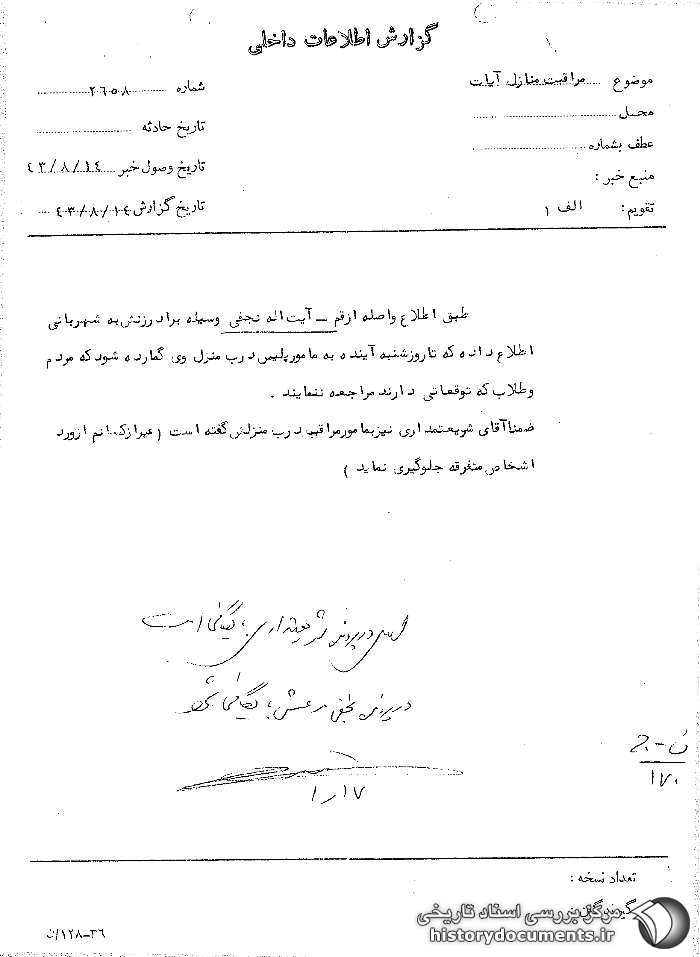 گزارش اطلاعات داخلی
موضوع مراقبت منازل آیات
شماره ۲۶۵۸
محل
تاریخ حادثه
عطف بشماره
تاریخ وصول خبر ۴۳/۸/۱۴
منبع خبر :
تاریخ گزارش ۴۳/۸/۱۴
تقویم: الف ۱
طبق اطلاع واصله ازقم ــ آیت اله نجفی وسیله برادرزنش به شهربانی
اطلاع داده که تا روزشنبه آینده به مامورپلیس درب منزل وی گمارده شود که مردم
وطلاب که توقعاتی دارند مراجعه ننمایند .
ضمنا آقای شریعتمداری نیزبمامورمراقب درب منزلش گفته است (غیرازکسانم ازورد
اشخاص متفرقه جلوگیری نماید )
در پرونده شریعتمداری بایگانی است
در پرونده نجفی مرعشی بایگانی شود
۱۷/۱
۱۷۰
تعداد نسخه :
۱۲۸-۳۶/ن
مرکز بررسی اسناد تاریخی
historydocuments.ir